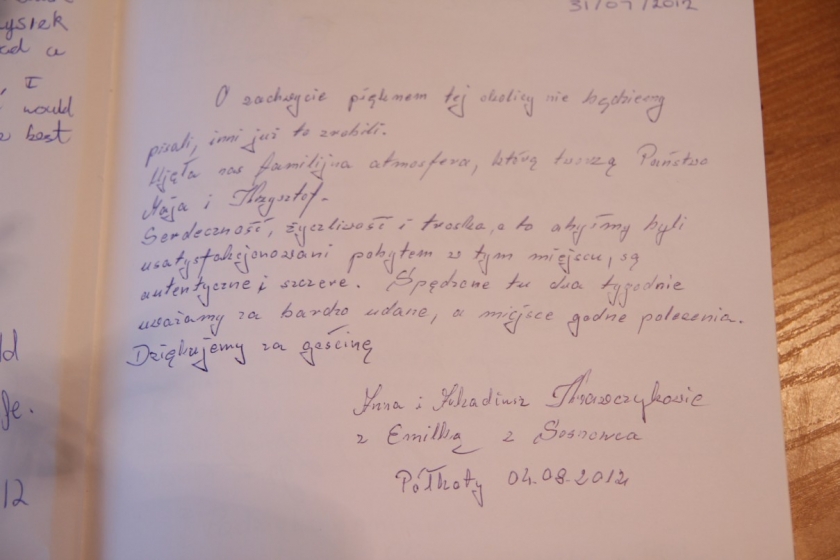 ysiek
I
would
best
31/07/2012
O zachwycie pięknem tej okolicy nie będziemy
pisali, inni już to zrobili.
Ujęła nas familijna atmosfera, którą tworzą Państwo
Maja i Krzysztof.
Serdeczność, życzliwość i troska, o to abyśmy byli
usatysfakcjonowani pobytem w tym miejscu, są
autentyczne i szczere. Spędzone tu dwa tygodnie
uważamy za bardzo udane, a miejsce godne polecenia.
Dziękujemy za gościnę
Anna i Arkadiusz Krawczykowie
z Emilką z Sosnowca
Półkoty 04.08.2012
12